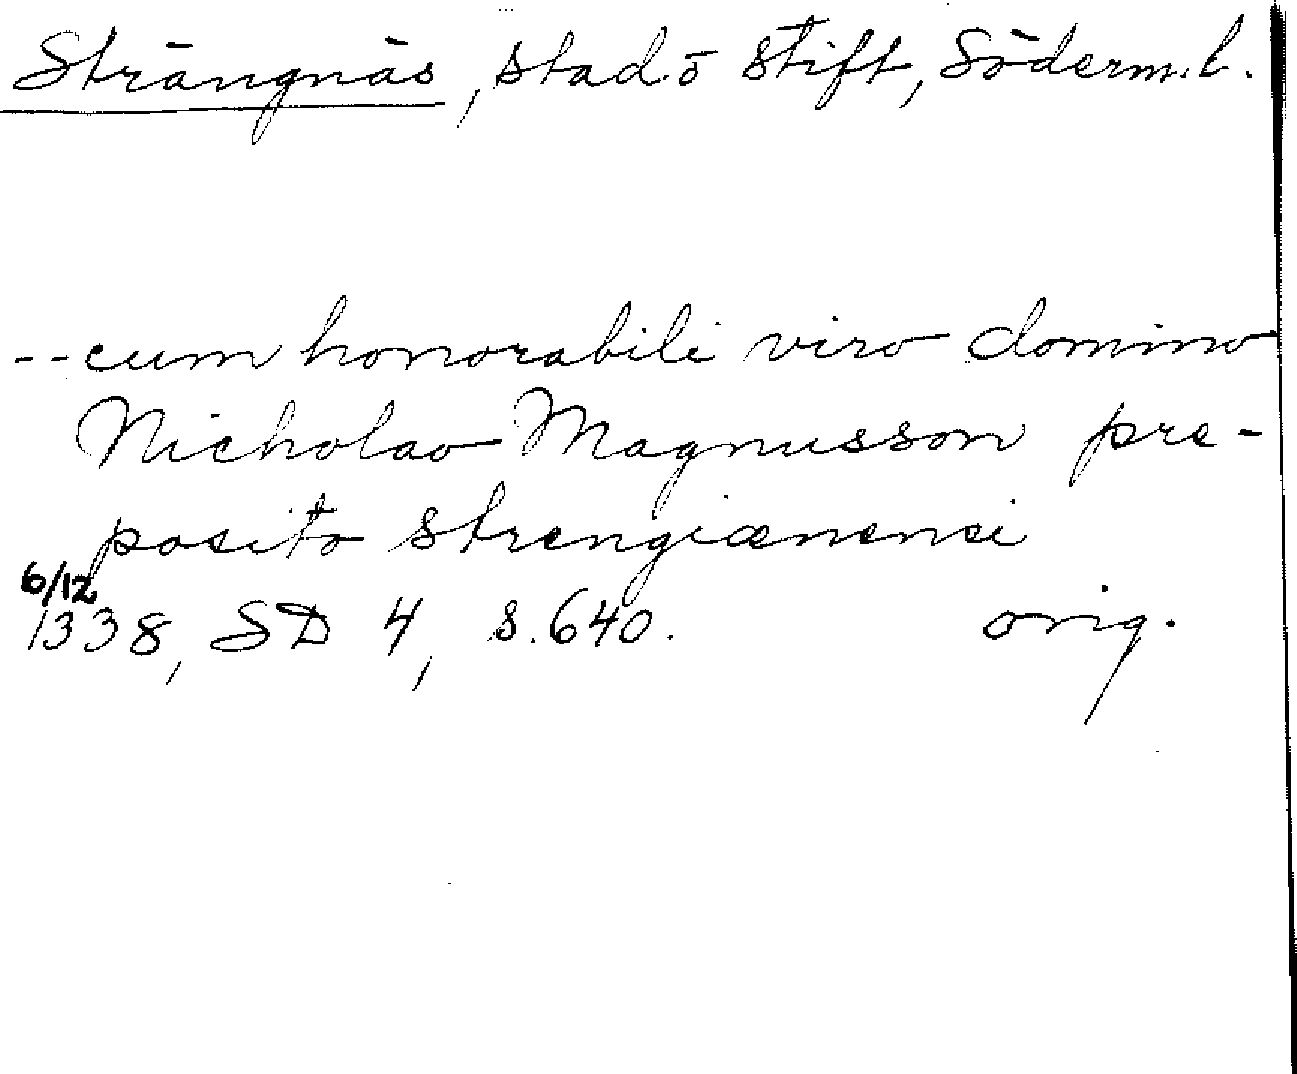 Strängnäs, stad o stift, Söderm.l.
--cum honorabili viro domino
Nicholao Magnusson pre-
posito strengiænensi
6/12
1338, SD 4, s. 640. orig.